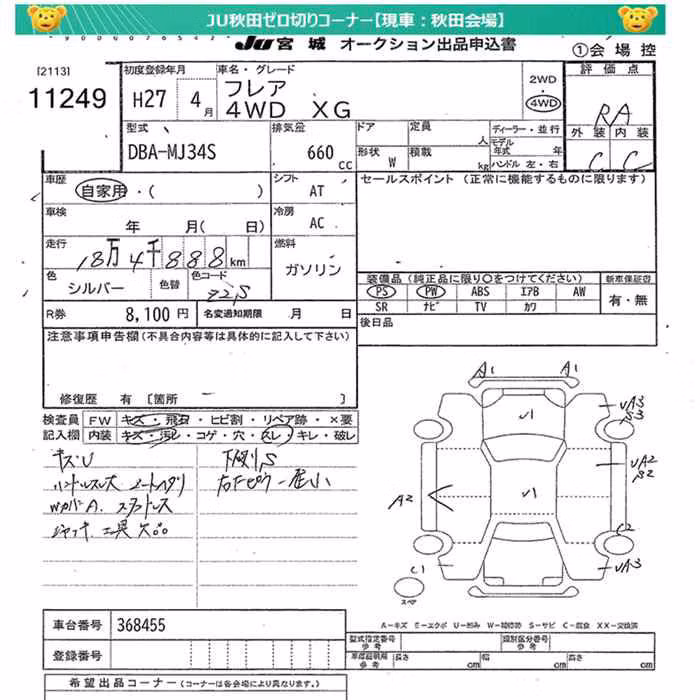 JU秋田ゼロ切りコーナー【現車：秋田会場】
JU 宮 城 オークション出品申込書
①会 場 控
[2113]
11249
初度登録年月
H27 4月
車名・グレード
フレア
4WD XG
2WD
4WD
評 価 点
RA
外 装 内 装
C C
型式
DBA-MJ34S
排気量
660 cc
ドア
定員 人
形状 W
積載 kg
ディーラー・並行
モデル年式 年
ハンドル 左・右
車歴
自家用・( )
シフト
AT
セールスポイント （正常に機能するものに限ります）
車検
年 月( 日)
冷房
AC
走行
18万4千888km
燃料
ガソリン
色
シルバー
色替
色コード
Z2S
装備品（純正品に限り○をつけてください）
PS PW ABS エアB AW
SR ナビ TV カワ
新車保証書
有・無
R券 8,100 円
名変通知期限 月 日
後日品
注意事項申告欄(不具合内容等は具体的に記入して下さい)
修復歴 有 〔箇所 〕
検査員
記入欄
FW キズ・飛石・ヒビ割・リペア跡・×要
内装 キズ・汚レ・コゲ・穴・スレ・キレ・破レ
キズU
ハンドルスレ大 シートヘタリ
WカバーA. スタッドレス
ジャッキ.工具欠品
下廻りS
A1 A1
U1
UA3
S3
UA2
S2
A2
U1
C2
C1
UA3
スペア
A－キズ E－エクボ U－凹み W－補修跡 S－サビ C－腐食 XX－交換済
車台番号 368455
登録番号
型式指定番号
参考
類別区分番号
参考
車庫証明
参考
長さ cm 幅 cm 高さ cm
希望出品コーナー（コーナーは各会場により異なります。）